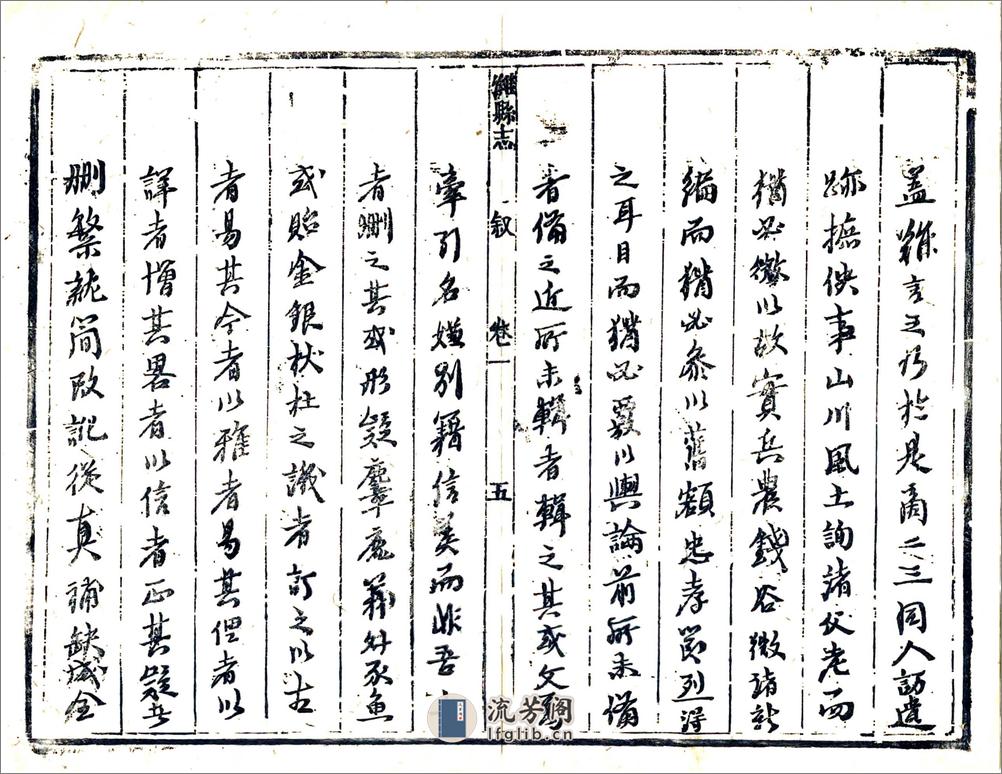 盖難言之乃於是商二三同人訪遺
跡摭佚事山川風土詢諸父老而
猶必徵以故實兵農錢谷徵諸新
編而猶必參以舊額忠孝節列得
之耳目而猶必覈以輿論前所未備
者備之近所未輯者輯之其或文
縣志 叙 卷一 五
牽引名嫌別籍信美而非吾
者刪之其或形疑麞鹿豕魚
或貽金銀杕杜之譏者訂之以古
者易其今者以雅者易其俚者以
詳者增其畧者以信者正其疑者
刪繁就簡改訛從真補缺成全
流芳阁
lfglib.cn